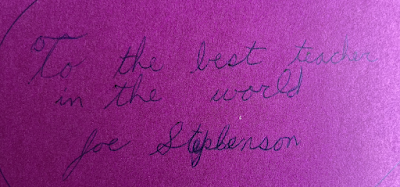 To the best teacher
in the world
Joe Stephenson